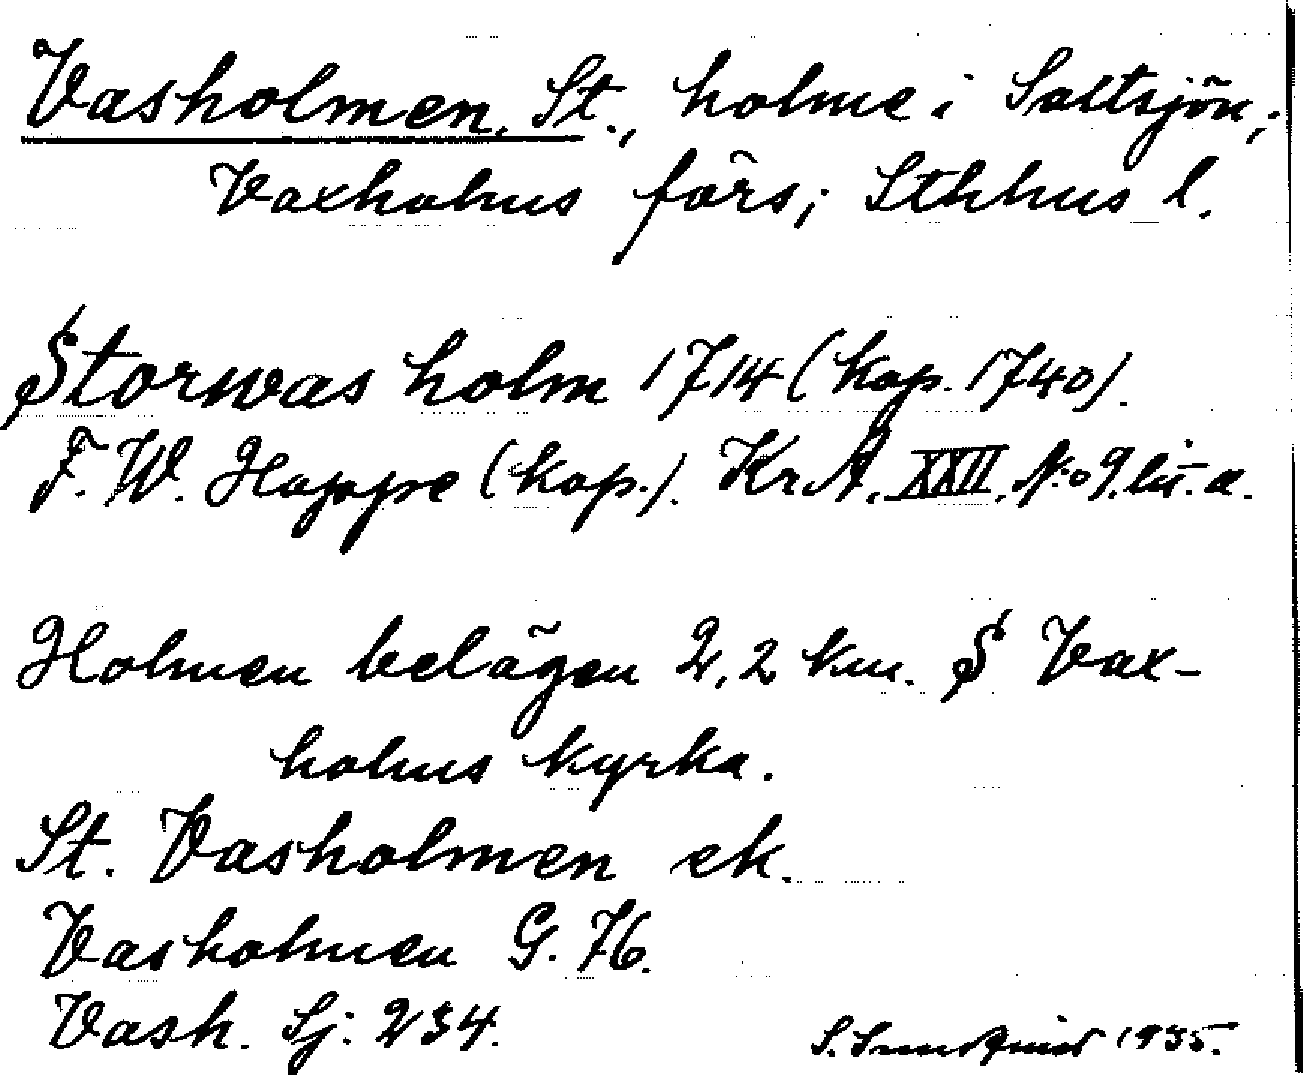 Vasholmen, St., holme i Saltsjön;
Vaxholms förs; Sthlms l.
Storwas holm 1714 (kop. 1740).
F. W. Hoppe (kop.). KrA. XXII. N:o 9. lit. a.
Holmen belägen 2,2 km. S Vax-
holms kyrka.
St. Vasholmen ek.
Vasholmen G. 76.
Vash. Sj: 234.
S. 1935.